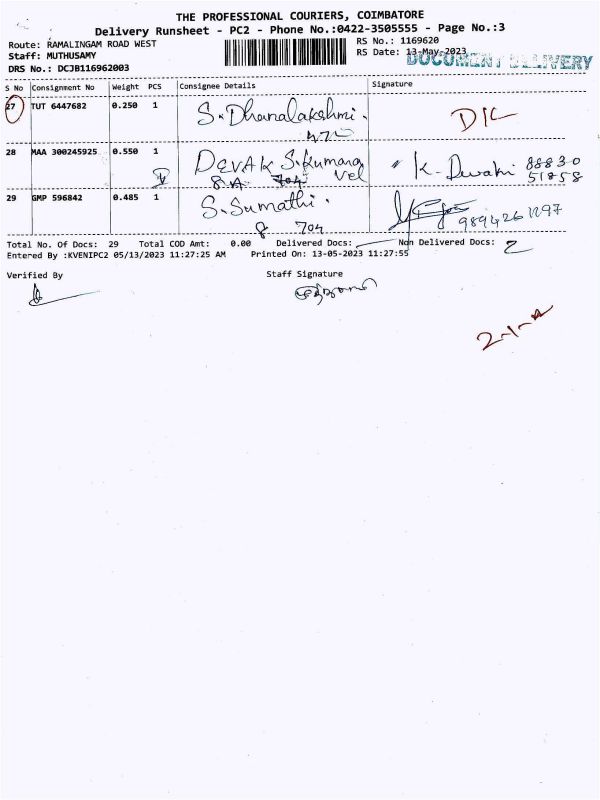 THE PROFESSIONAL COURIERS, COIMBATORE
Delivery Runsheet - PC2 - Phone No.:0422-3505555 - Page No.:3
Route: RAMALINGAM ROAD WEST
Staff: MUTHUSAMY
DRS No.: DCJB116962003
RS No.: 1169620
RS Date: 13-May-2023
DOCUMENT DELIVERY
S No Consignment No Weight PCS Consignee Details Signature
27 TUT 6447682 0.250 1 S. Dhanalakshmi. D/L
28 MAA 300245925 0.550 1 DEVAK S. Kumara vel K. Dwaki 88830
8A 704 51858
29 GMP 596842 0.485 1 S. Sumathi.
8 704
Total No. Of Docs: 29 Total COD Amt: 0.00 Delivered Docs: Non Delivered Docs: 2
Entered By :KVENIPC2 05/13/2023 11:27:25 AM Printed On: 13-05-2023 11:27:55
Verified By Staff Signature